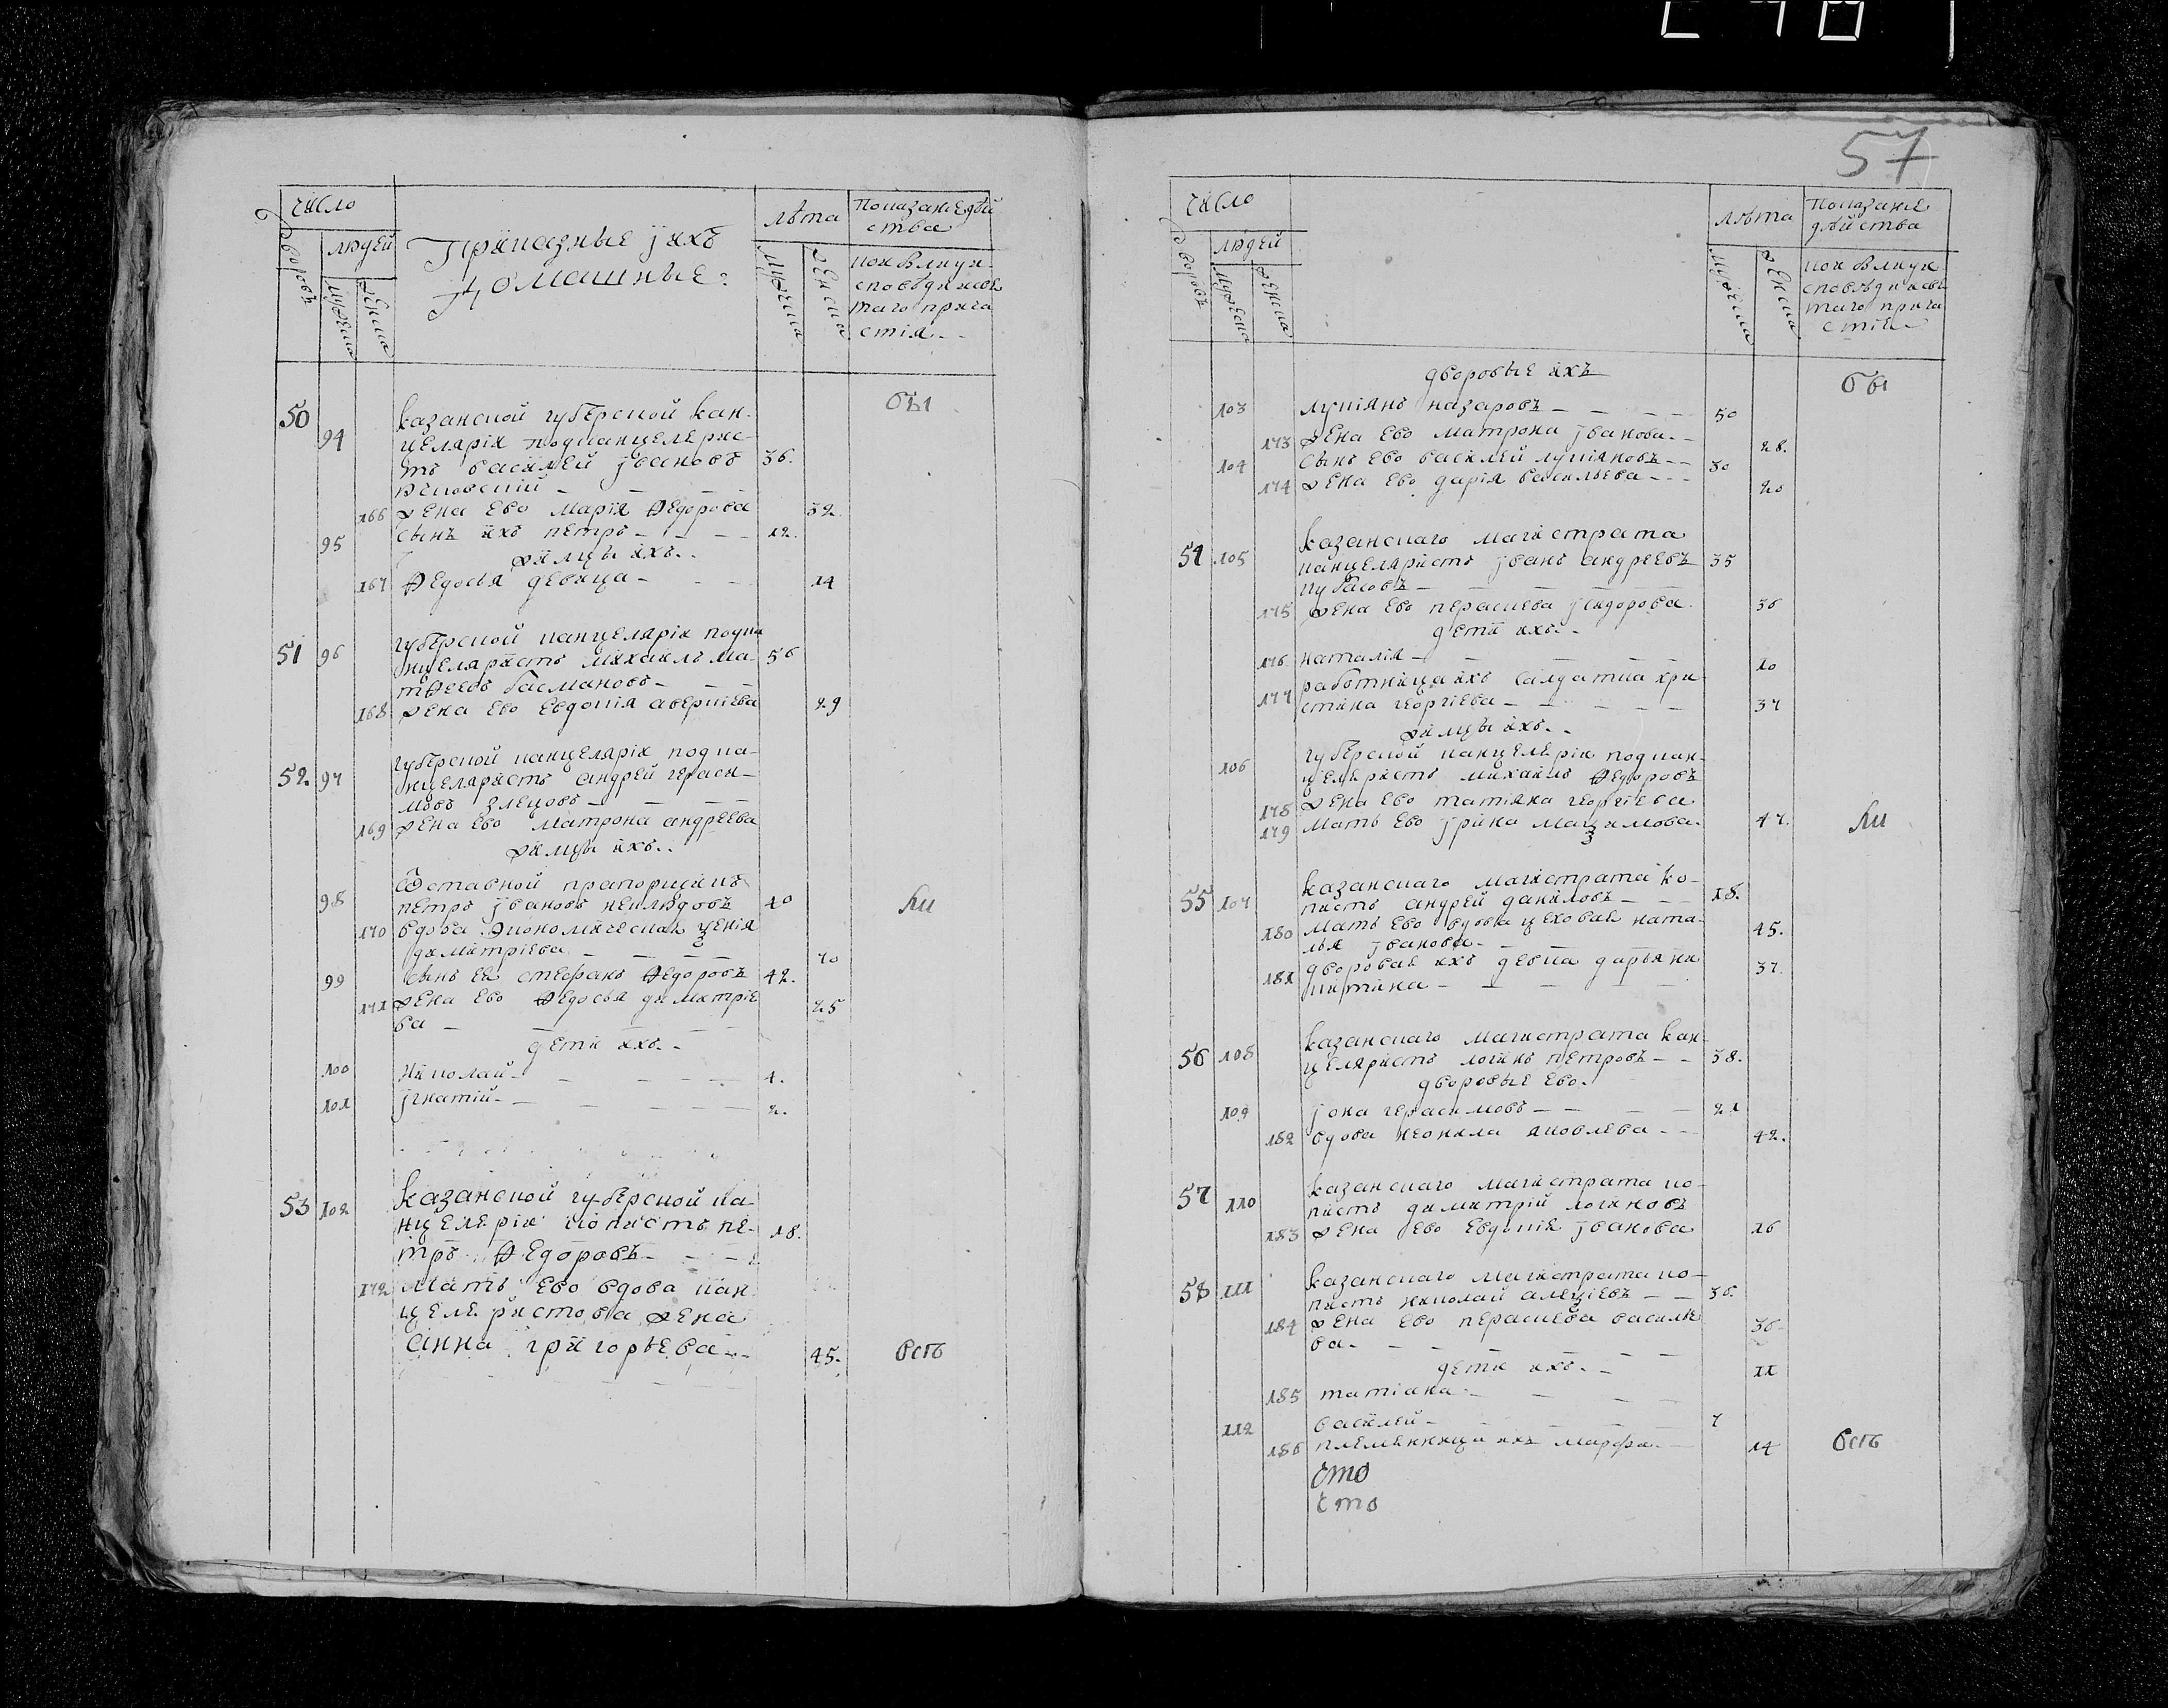 57
число
дворовъ
людей
мужеска
женска
Приказные ј ихъ
домашные:
лѣта
мужеска
женска
Показание дѣй
ства
кои были у и
споведи и свѣ
таго прича
стия
50
94
казанской губернской кан-
целяріи подканцеляри-
стъ василей јвановъ 36.
166 жена ево марія ѳедорова 32
95 сынъ ихъ петръ 12.
жилцы ихъ
167 ѳедосья девица 14
бы
51 96
губернской канцеляріи подка
нцеляристъ михаилъ ма- 56
тѳеевъ басмановъ
168 жена ево евдокія аверкіева 29
52. 97
губернской канцеляріи подка-
нцеляристъ андрей гераси-
мовъ
169 жена ево матрона андреева
жилцы ихъ
98 отставной прапорщикъ
петръ јвановъ неклюдовъ 40
ли
170 вдова экономическая ѯенія
димитріева 70
99 сынъ ея стефанъ ѳедоровъ 42.
171 жена ево ѳедосья димитріе
ва 25
дети ихъ
100 николай 4.
101 јгнатій 2.
53 102 казанской губернской ка-
нцеляріи копистъ пе- 18.
тръ ѳедоровъ
172 мать ево вдова кан
целяристова жена
анна григорьева 45. всѣ
57
число
дворовъ
людей
мужеска
женска
лѣта
мужеска
женска
Показание
дѣйства
кои были у и
споведи и свѣ
таго прича
стия
дворовые ихъ
бы
103 лукіянъ назаровъ 50
173 жена ево матрона јванова 28.
104 сынъ ево василей лукіяновъ 30
174 жена ево дарія васильева 20
54 105 казанскаго магистрата
канцеляристъ јванъ андреевъ 35
губасовъ
175 жена ево параскева јсидорова 36
дети ихъ
176 наталія 10
177 работница ихъ салдатка хри
стина георгіева 37
жилцы ихъ
106 губернской канцеляріи подкан-
целяристъ михаилъ ѳедоровъ
178 жена ево татіяна георгіева
179 мать ево јрина маѯимова 47. ли
55 107 казанскаго магистрата ко-
пистъ андрей даниловъ 18.
180 мать ево вдова цеховая ната-
лья јванова 45.
181 дворовая ихъ девка дарья ни
китина 37.
56 108 казанскаго магистрата кан
целяристъ логинъ петровъ 38.
дворовые ево
109 јона герасимовъ 21
182 вдова неонила яковлева 42.
57 110 казанскаго магистрата ко-
пистъ димитрій логиновъ
183 жена ево евдокія јванова 16
58 111 казанскаго магистрата ко-
пистъ николай алеѯіевъ 36.
184 жена ево параскева василие
ва 36
дети ихъ
185 татіана 11
112 василей 7
186 племянница ихъ марфа 14 всѣ
что
что